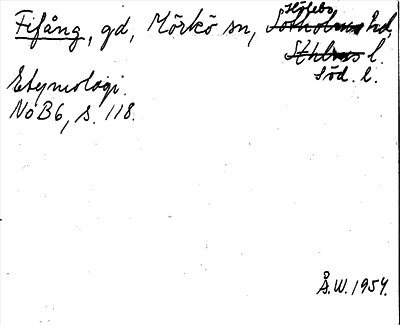 Hölebo
Fifång, gd, Mörkö sn, Sotholms hd,
Sthlms l.
Söd. l.
Etymologi.
NoB6, s. 118.
Å.W. 1954.